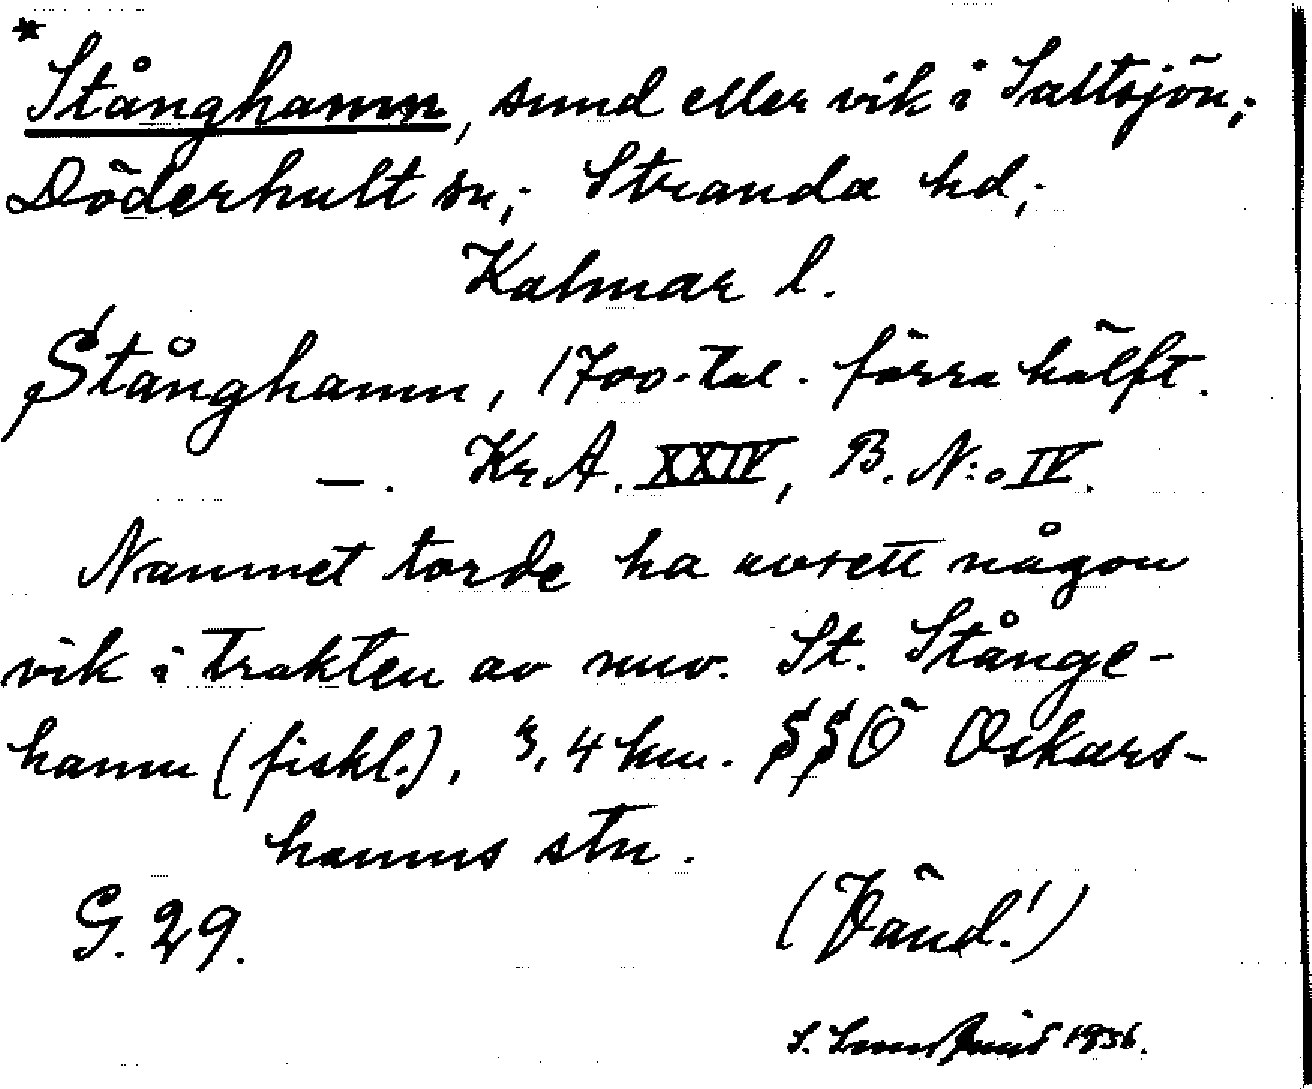 *
Stånghamn, sund eller vik i Saltsjön;
Döderhult sn; Stranda hd;
Kalmar l.
Stånghamn, 1700-tal. förra hälft.
—. Kr.A. XXIV, B. N:o IV.
Namnet torde ha avsett någon
vik i trakten av nuv. St. Stånge-
hamn (fiskl.), 3,4 km. SSÖ Oskars-
hamns stn.
G. 29. (Vänd!)
S. 1936.